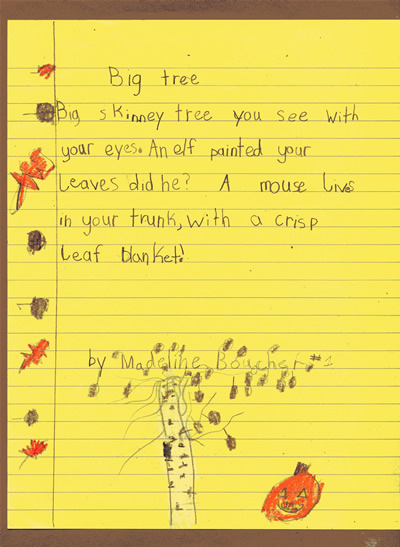 Big tree
Big skinney tree you see with
your eyes. An elf painted your
Leaves did he? A mouse lives
in your trunk, with a crisp
Leaf blanket!
by Madeline Boucher #1